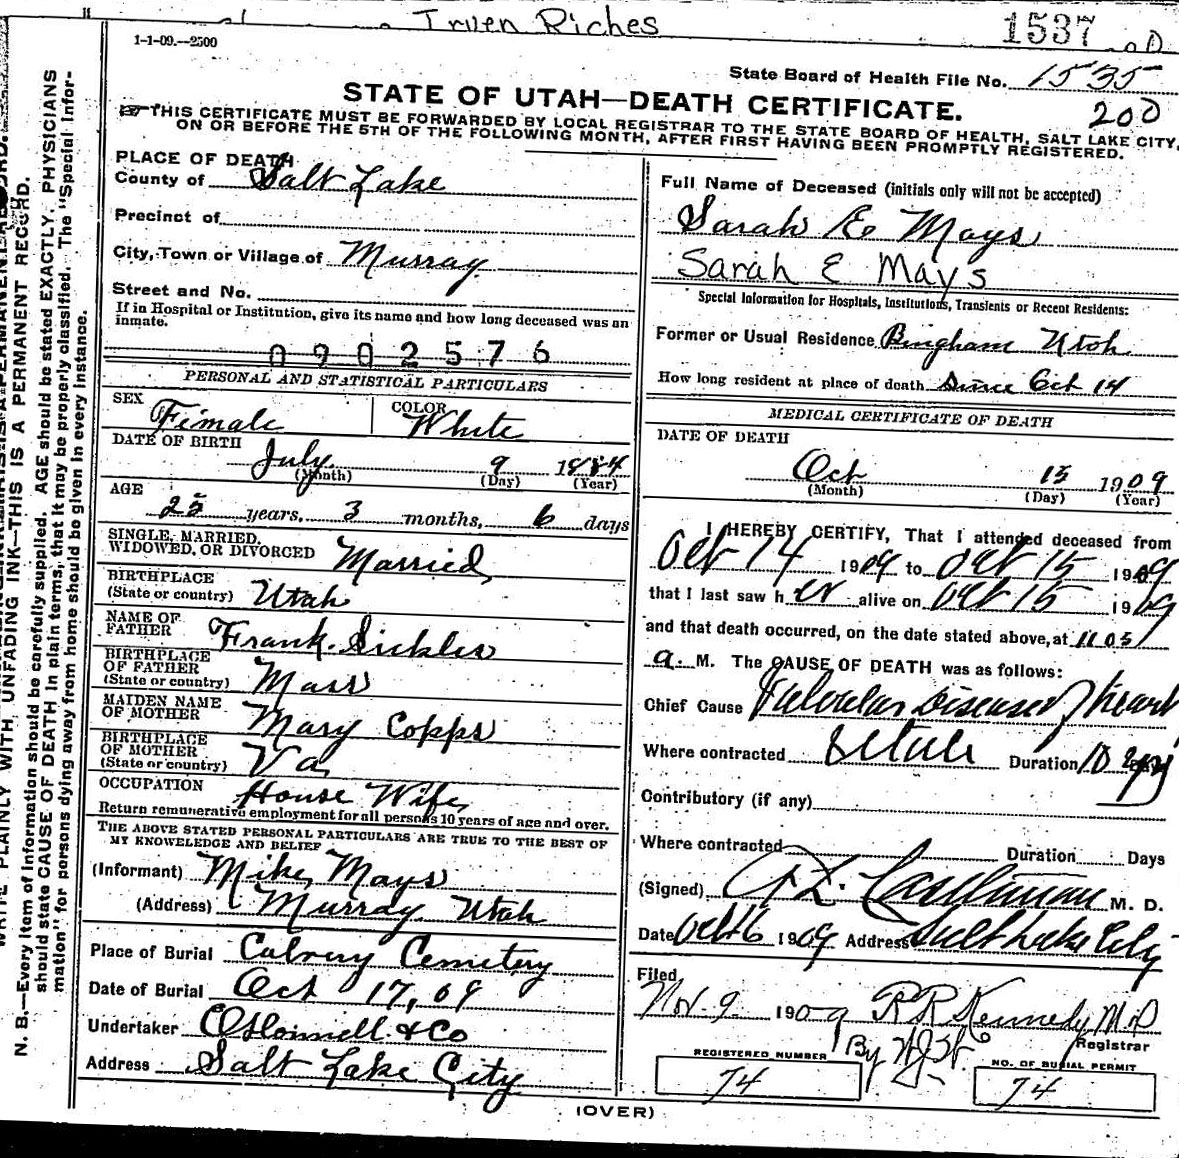 Irven Riches
1537
1-1-09.--2500
State Board of Health File No. 1535
200
STATE OF UTAH—DEATH CERTIFICATE.
THIS CERTIFICATE MUST BE FORWARDED BY LOCAL REGISTRAR TO THE STATE BOARD OF HEALTH, SALT LAKE CITY,
ON OR BEFORE THE 5TH OF THE FOLLOWING MONTH, AFTER FIRST HAVING BEEN PROMPTLY REGISTERED.
PLACE OF DEATH
County of Salt Lake
Precinct of
City, Town or Village of Murray
Street and No.
If in Hospital or Institution, give its name and how long deceased was an
inmate.
0902576
PERSONAL AND STATISTICAL PARTICULARS
SEX Female
COLOR White
DATE OF BIRTH
July 9 1884
(Month) (Day) (Year)
AGE
25 years, 3 months, 6 days
SINGLE, MARRIED,
WIDOWED, OR DIVORCED Married
BIRTHPLACE
(State or country) Utah
NAME OF
FATHER Frank Sickles
BIRTHPLACE
OF FATHER
(State or country) Mass
MAIDEN NAME
OF MOTHER Mary Copps
BIRTHPLACE
OF MOTHER
(State or country) Va
OCCUPATION House Wife
Return remunerative employment for all persons 10 years of age and over.
THE ABOVE STATED PERSONAL PARTICULARS ARE TRUE TO THE BEST OF
MY KNOWLEDGE AND BELIEF
(Informant) Mike Mays
(Address) Murray Utah
Place of Burial Calvery Cemetery
Date of Burial Oct 17, 09
Undertaker O'Donnell & Co
Address Salt Lake City
Full Name of Deceased (initials only will not be accepted)
Sarah E Mays
Sarah E Mays
Special Information for Hospitals, Institutions, Transients or Recent Residents:
Former or Usual Residence Bingham Utah
How long resident at place of death Since Oct 14
MEDICAL CERTIFICATE OF DEATH
DATE OF DEATH
Oct 15 1909
(Month) (Day) (Year)
I HEREBY CERTIFY, That I attended deceased from
Oct 14 1909 to Oct 15 1909
that I last saw her alive on Oct 15 1909
and that death occurred, on the date stated above, at 11 05
a. M. The CAUSE OF DEATH was as follows:
Chief Cause Valvular Disease of heart
Where contracted Duration 10
Contributory (if any)
Where contracted Duration Days
(Signed) M. D.
Date Oct 16 1909 Address Salt Lake City
Filed,
Nov. 9 1909 R R Kennedy, M.D
By Registrar
REGISTERED NUMBER
74
NO. OF BURIAL PERMIT
74
(OVER)
N. B.—Every item of information should be carefully supplied. AGE should be stated EXACTLY. PHYSICIANS
should state CAUSE OF DEATH in plain terms, that it may be properly classified. The "Special Infor-
mation" for persons dying away from home should be given in every instance.
WRITE PLAINLY WITH UNFADING INK—THIS IS A PERMANENT RECORD.